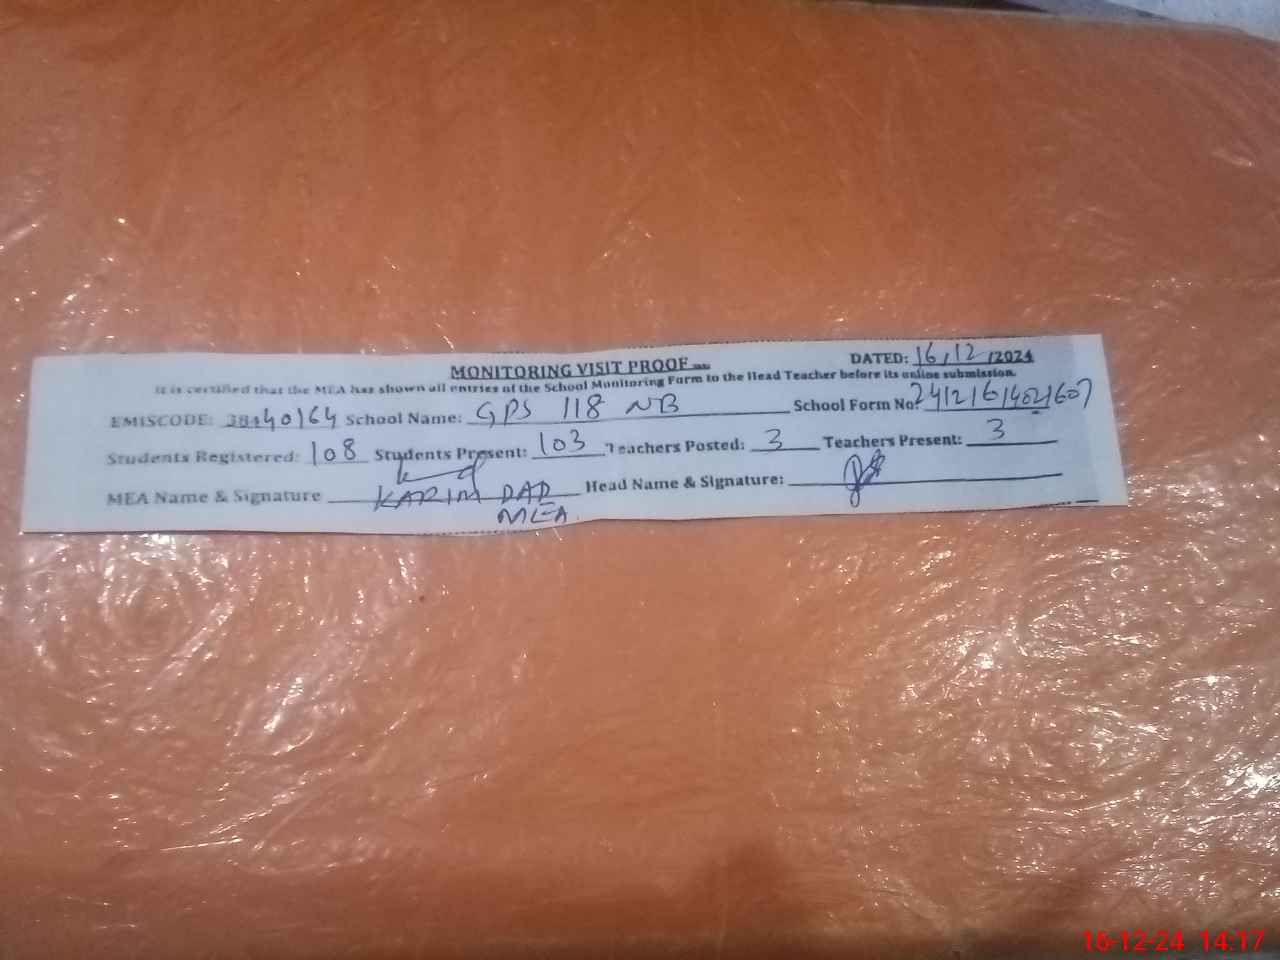 MONITORING VISIT PROOF
DATED: 16/12/2024
It is certified that the MEA has shown all entries of the School Monitoring Form to the Head Teacher before its online submission.
EMISCODE: 38440164 School Name: GPS 118 NB School Form No:
Students Registered: 108 Students Present: 103 Teachers Posted: 3 Teachers Present: 3
MEA Name & Signature KARIM DAD Head Name & Signature:
MEA
16-12-24 14:17